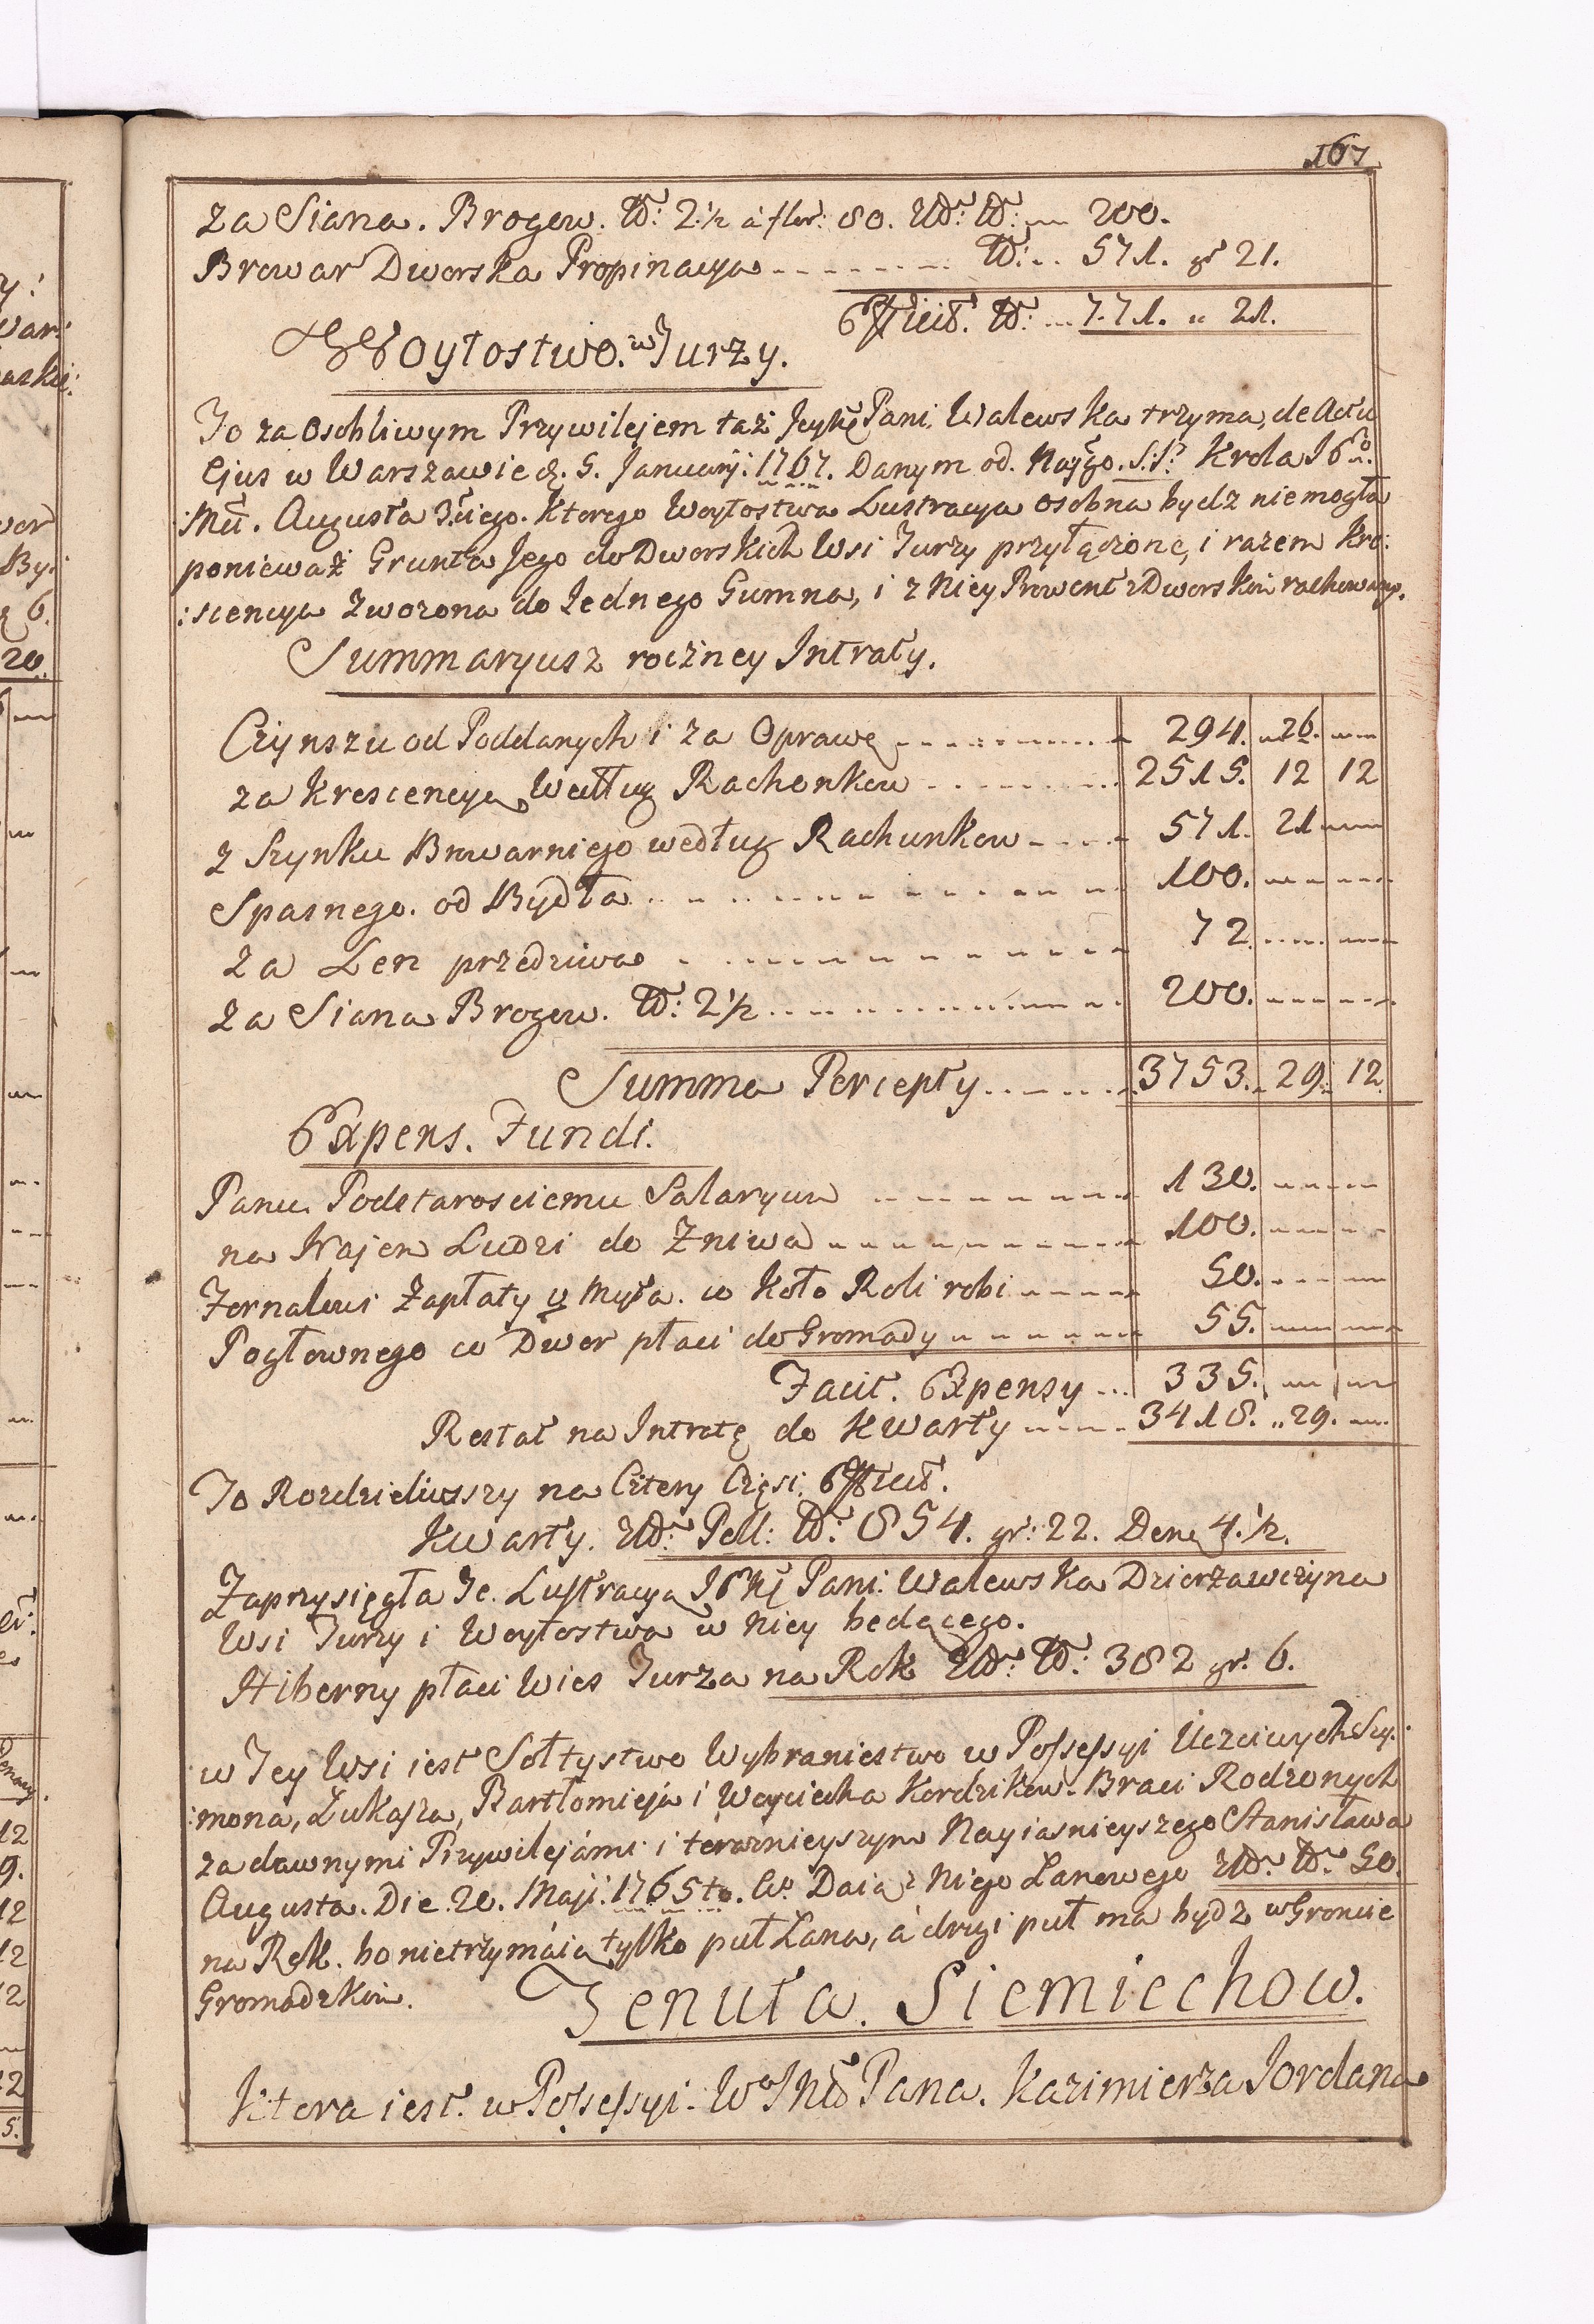 167
za Siana. Brogow. No: 2½ á flor: 80. No: 200.
Browar Dworska Propinacya 571. gr 21.
Efficit. 771. „ 21.
Woytostwo. w Turzy.
To za Osobliwym Przywilejem taż Pani Walewska trzyma, de Actu
Ejus w Warszawie d. 5. January: 1767. Danym od. Naygo. S:S? Krola
Augusta 3. Ktorego Woytostwa Lustracya osobna bydz niemogła
ponieważ Grunta Jego do Dworskich Wsi Turzy przyłączone, i razem Kre:
:scencya zwożona do Jednego Gumna, i z Niey Prowent z Dworskim rachowany.
Summaryusz roczney Intraty.
Czynszu od Poddanych i za Oprawę 294. 26.
za Krescencyą Według Rachonkow 2515. 12 12
z Szynku Browarniego według Rachunkow 571. 21
Spasnego. od Bydła 100.
za Len przedziwa 72
za Siana Brogow. No: 2½ 200.
Summa Percepty 3753. 29. 12.
Expens. Fundi.
Panu Podstarosciemu Salaryum 130.
na Najem Ludzi do Zniwa 100.
Fornalowi Zapłaty y Myta. co Koło Roli robi 50.
Pogłownego co Dwor płaci do Gromady 55.
Facit. Expensy 335.
Restat na Intratę do Kwarty 3418. „ 29.
To Rozdzieliwszy na Cztery Częsi. Efficit.
Kwarty. Poll: 854. gr: 22. Den. 4.½.
Zaprzysięgła Te. Lustracyą Pani: Walewska Dzierżawczyna
Wsi Turzy i Woytostwa w Niey będącego.
Hiberny płaci Wies Turza na Rok 382 gr. 6.
w Tey Wsi iest Sołtystwo Wybraniestwo w Possessyi Uczciwych Szy:
:mona, Łukasza, Bartłomieja i Woyciecha Kordzikow. Braci Rodzonych
za dawnymi Przywilejámi i teraznieyszym Nayiasnieyszego Stanisława
Augusta. Die 20. Maji: 1765to. Daią z Niego Łanowego 50.
na Rok. bo nietrzymáią tylko puł Łana, á drugi puł ma bydz w Groncie
Gromadzkim.
Tenuta. Siemiechow.
Ktora iest. w Possessyi. Pana. Kazimierza Jordana